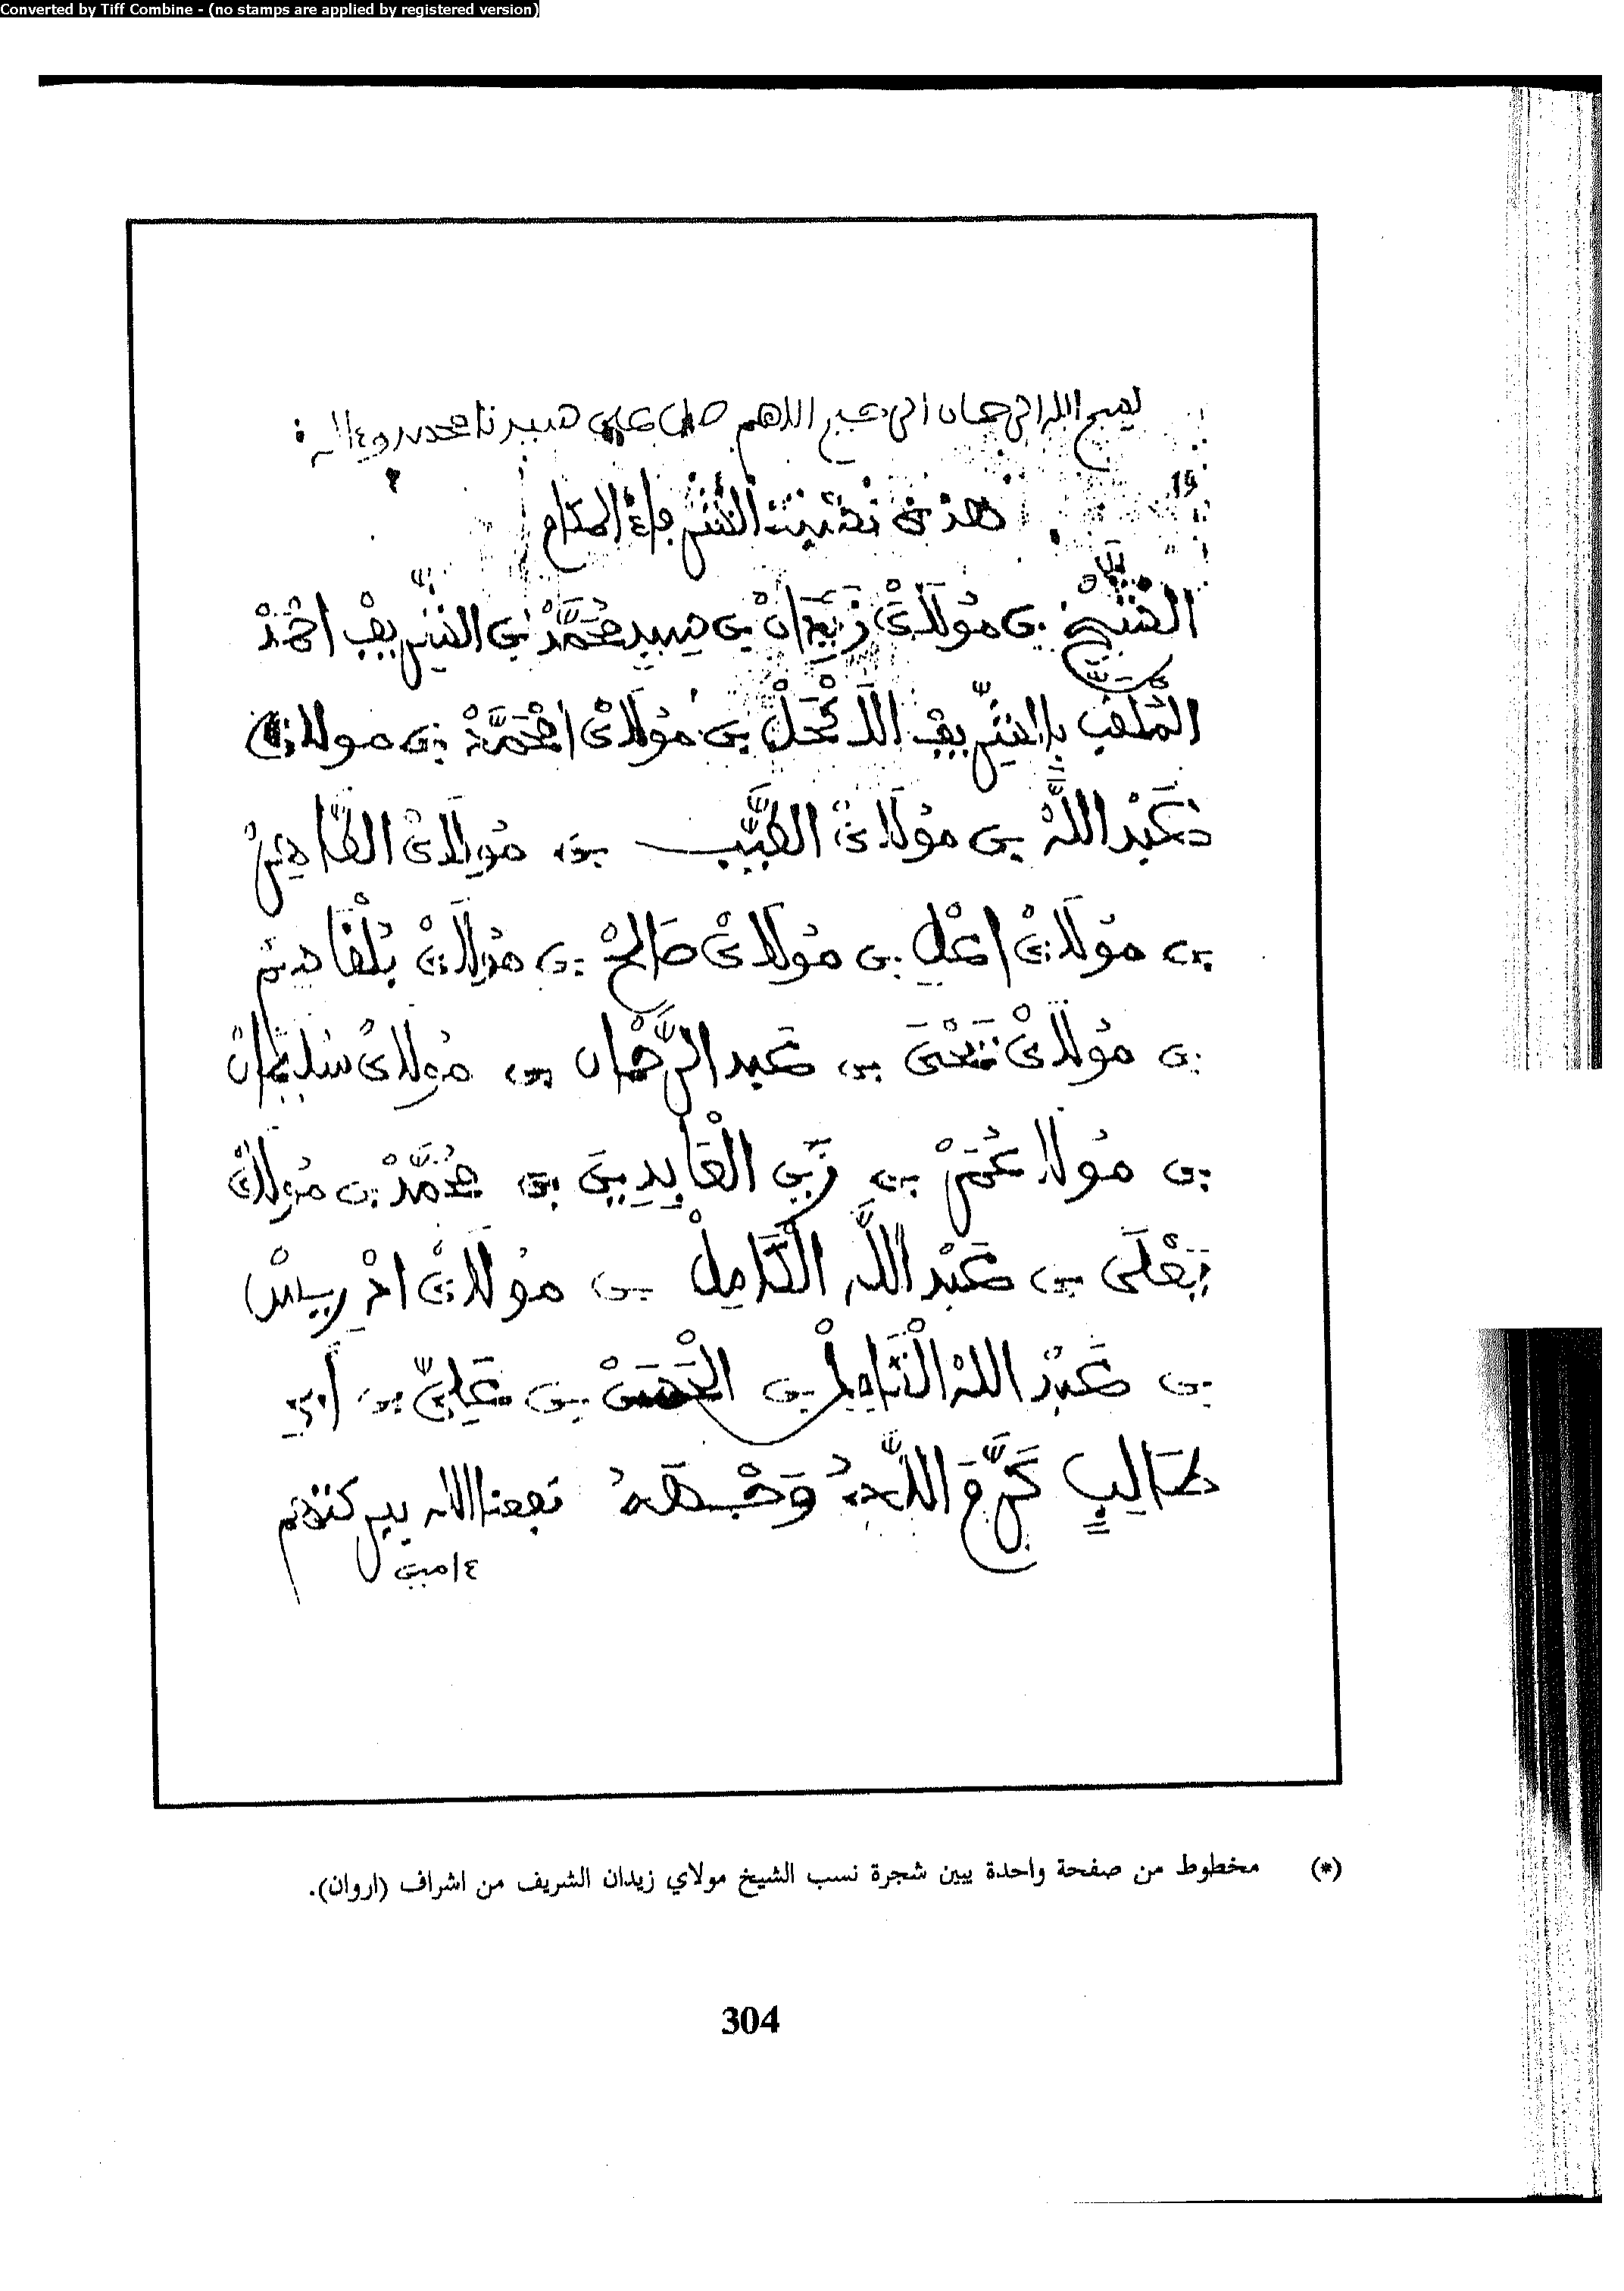 Converted by Tiff Combine - (no stamps are applied by registered version)
بسم الله الرحمان الرحيم اللهم صل على سيدنا محمد وءاله
هذه الشرفاء الكرام
الشيخ بن مولاي زيدان بن سيد محمد بن الشريف احمد
الملقب بالشريف الاكحل بن مولاي امحمد بن مولاي
عبد الله بن مولاي الطيب بن مولاي الطاهر
بن مولاي اعل بن مولاي صالح بن مولاي بلقاسم
بن مولاي يحيى بن عبد الرحمان بن مولاي سليمان
بن مولا عمر بن زين العابدين بن محمد بن مولاي
يعلى بن عبد الله الكامل بن مولاي ادريس
بن عبد الله الكامل بن الحسن بن علي بن أبي
طالب كرم الله وجهه نفعنا الله ببركتهم
ءامين
(*) مخطوط من صفحة واحدة يبين شجرة نسب الشيخ مولاي زيدان الشريف من اشراف (اروان).
304